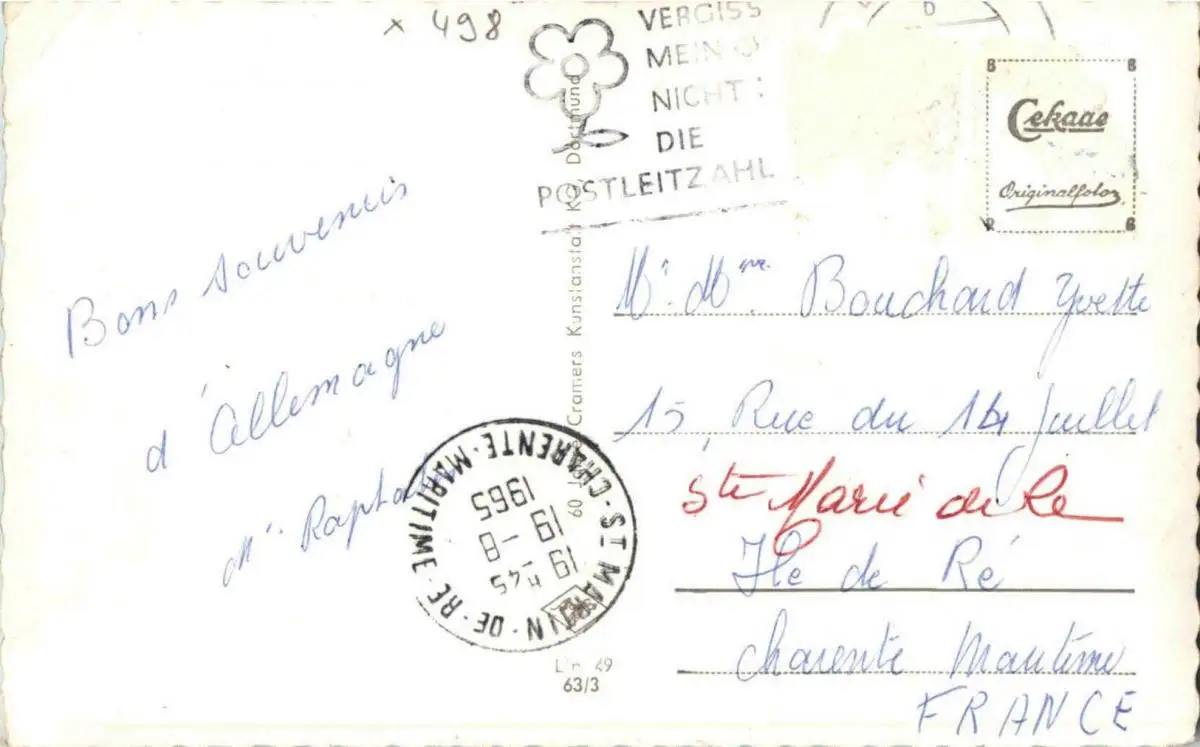 x 498
VERGISS
MEIN
NICHT
DIE
POSTLEITZAHL
Cekade
Originalfoto
Bons souvenirs
d'Allemagne
Mr. Mme. Bouchard Yvette
15, Rue du 14 Juillet
Ste Marie de Ré
Ile de Ré
Charente Maritime
FRANCE
Cramers Kunstanstalt KG, Dortmund
ST MARTIN-DE-RE
CHARENTE-MARITIME
19 H 45
19-8
1965
49
63/3